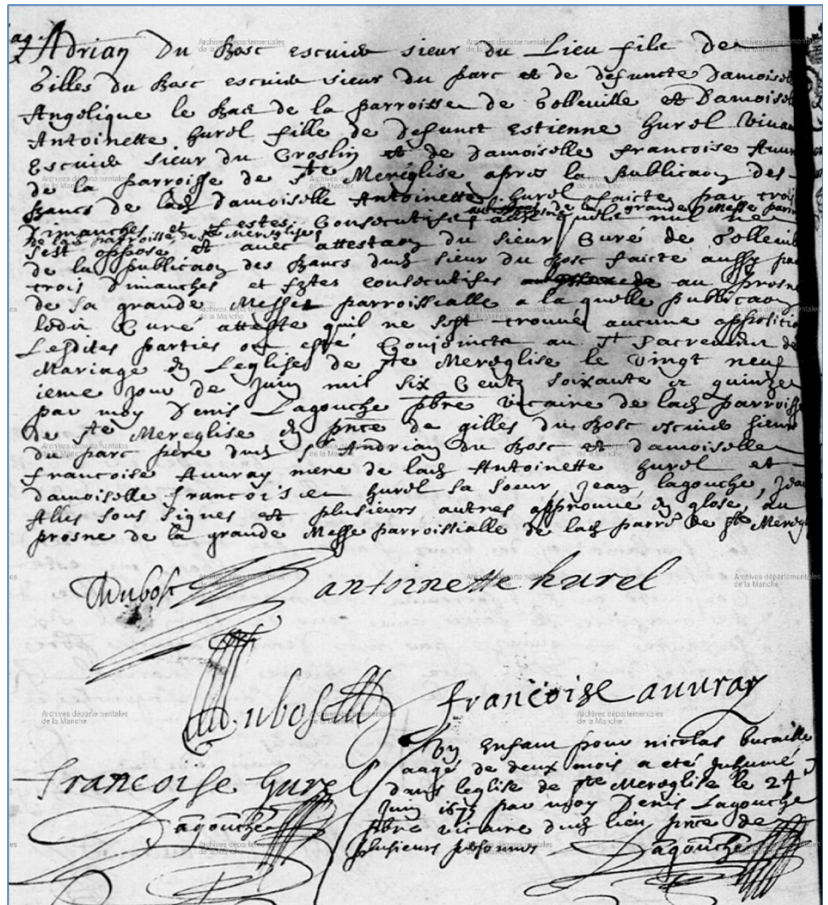 Adrian du Bosc escuier sieur du Lieu fils de
Gilles du Bosc escuier sieur du parc et de defuncte damoiselle
Angelique le Bas de la parroisse de Golleville et Damoiselle
Antoinette hurel fille de defunct Estienne hurel vivant
Escuier sieur du Groslin et de damoiselle francoise Auvray
de la parroisse de Ste Mereglise apres la publicaon des
Bancs de lad damoiselle Antoinette hurel faicte par trois
dimanches et festes consecutifs nul ne
de lad parroisse de Ste Mereglise
sest oppose et avec attestaon du sieur Curé de Golleville
de la publicaon des Bancs dud sieur du Bosc faicte aussy par
trois dimanches et festes consecutifes au prosne
de sa grande Messe parroissialle a la quelle publicaon
ledit Curé atteste quil ne sest trouvé aucune opposition
Lesdites parties ont esté Conjoincts au St Sacrement de
Mariage en Leglise de Ste Mereglise le vingt neuf
ieme jour de juin mil six Cents soixante et quinze
par moy Denis Lagouche pbre vicaire de lad parroisse
de Ste Mereglise en pnce de gilles du Bosc escuier sieur
du parc père dud sr Andrian du Bosc et damoiselle
francoise Auvray mere de lad Antoinette hurel et
damoiselle francoise hurel sa soeur jean lagouche, jean
Allis sous signes et plusieurs autres approuvé en glose, au
prosne de la grande Messe parroissialle de lad parr de Ste Mereglise
Adubosc antoinette hurel
Dubosc
francoise auvray
francoise hurel
Lagouche
Un Enfant pour nicolas bucaille
aagé de deux mois a eté Inhumé
dans leglise de Ste Mereglise le 24
juin 1675 par moy Denis Lagouche
pbre vicaire dud lieu pnce de
plusieurs personnes
Lagouche
Archives départementales
de la Manche